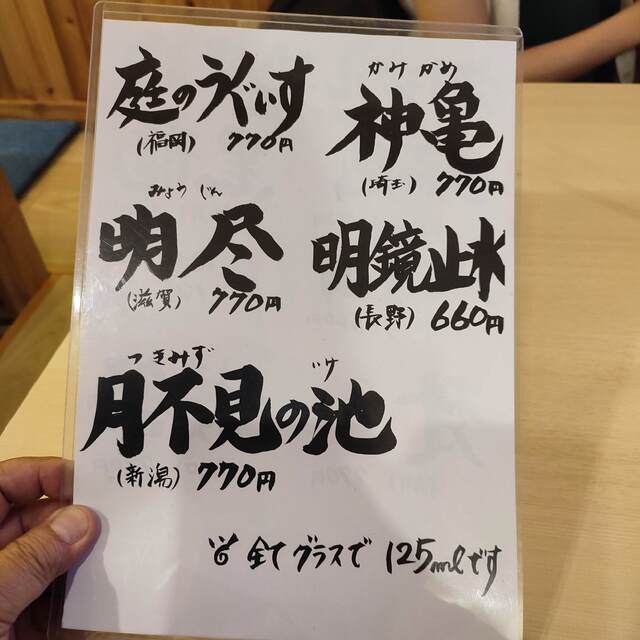 庭のうぐいす
(福岡) 770円
かみ かめ
神亀
(埼玉) 770円
みょう じん
明尽
(滋賀) 770円
明鏡止水
(長野) 660円
つきみず いけ
月不見の池
(新潟) 770円
全てグラスで 125mlです